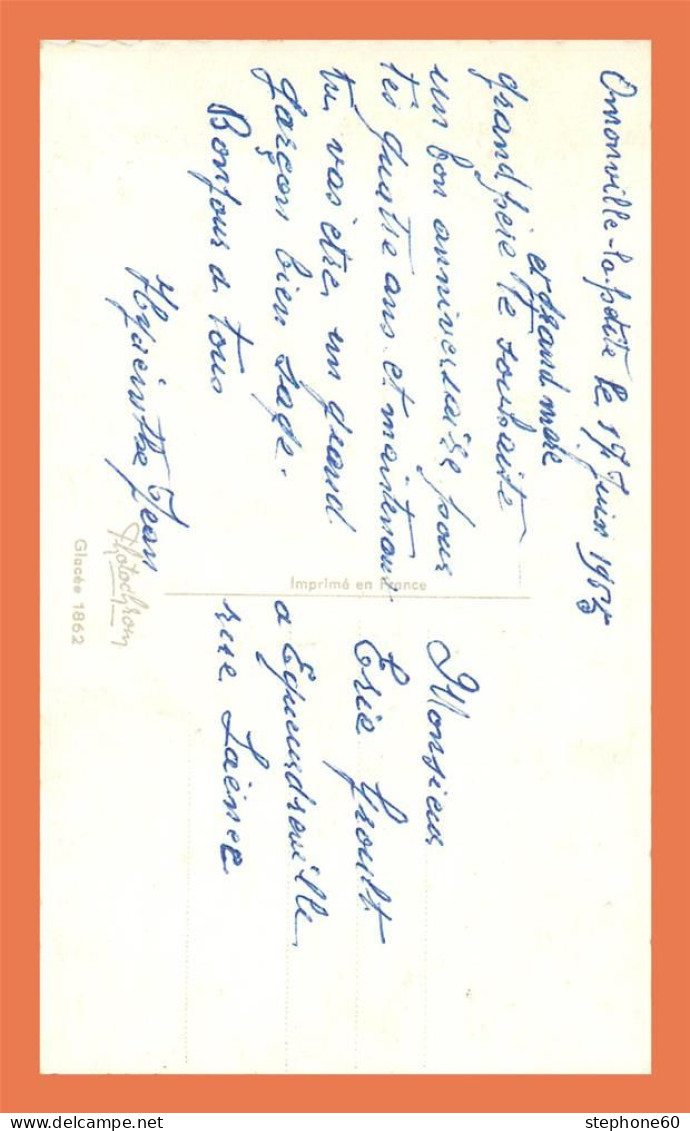 Omonville-la-petite le 17 Juin 1965
et grand mère
grand père te souhaite
un bon anniversaire pour
tes quatre ans et maintenant
tu vas être un grand
garçon bien sage.
Bonjour à tous
Hyacinthe Jean
Imprimé en France
Photochrom
Glacée 1862
Monsieur
Eric Groult
a Equeurdreville
rue Laënec
stephone60